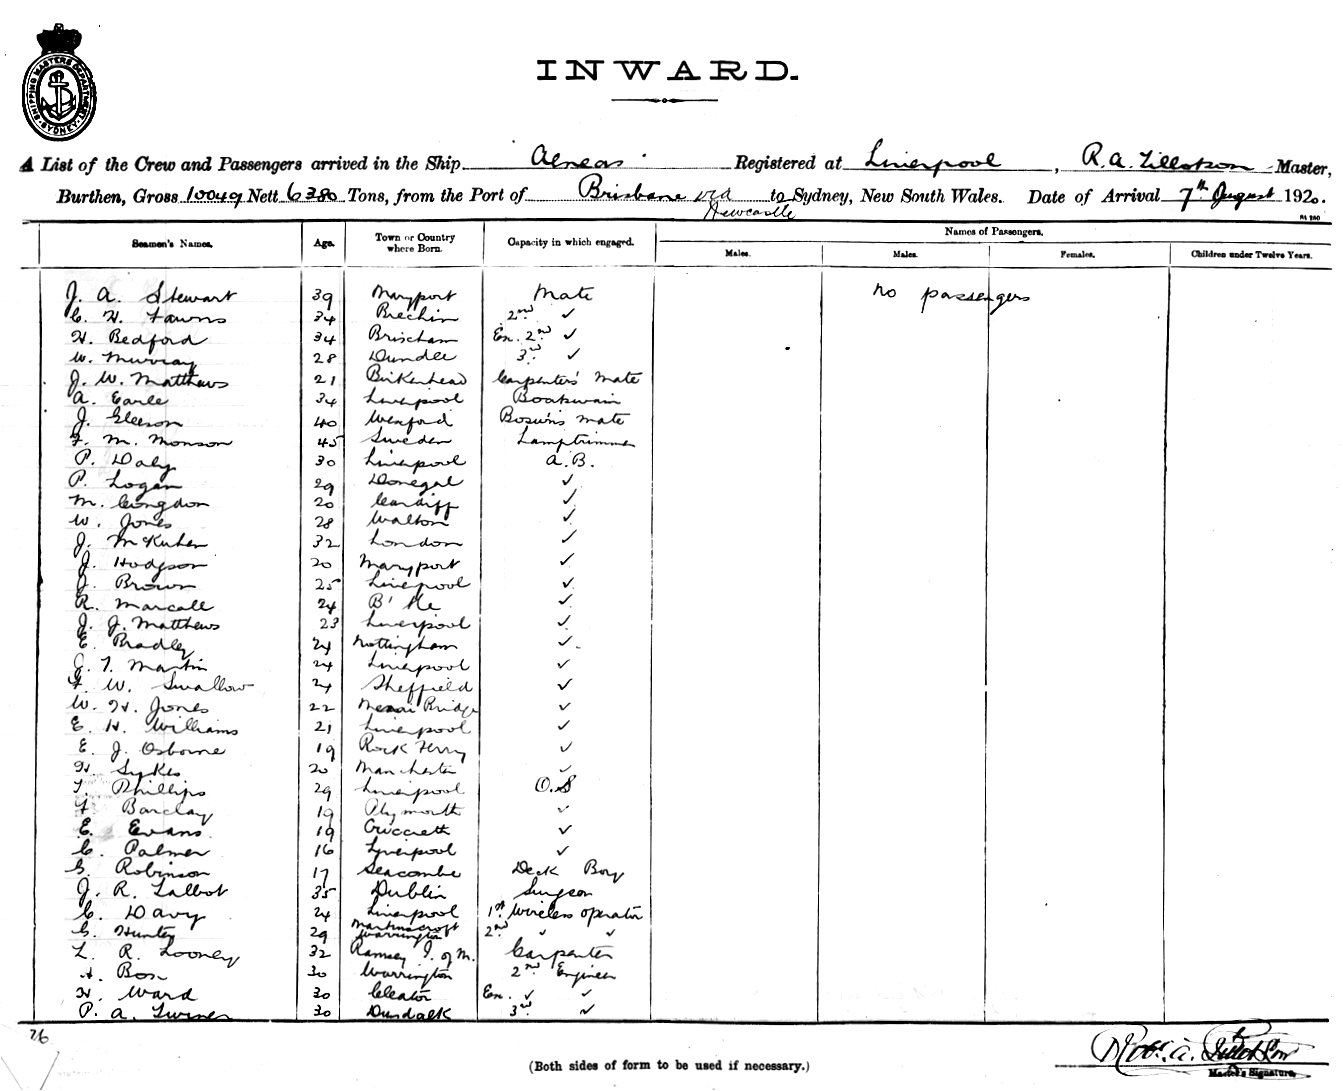 SHIPPING MASTERS DEPARTMENT
SYDNEY
INWARD.
A List of the Crew and Passengers arrived in the Ship Aeneas Registered at Liverpool, R.A. Tillotson Master,
Burthen, Gross 10049 Nett 6380 Tons, from the Port of Brisbane via Newcastle to Sydney, New South Wales. Date of Arrival 7th August 1920.
Names of Passengers.
Seamen's Names. Age. Town or Country where Born. Capacity in which engaged. Males. Males. Females. Children under Twelve Years.
J. A. Stewart 39 Maryport Mate no passengers
C. H. Fawns 34 Brechin 2nd ✓
H. Bedford 34 Brixham Ex. 2nd ✓
W. Murray 28 Dundee 3rd ✓
J. W. Matthews 21 Birkenhead Carpenters' Mate
A. Earle 34 Liverpool Boatswain
J. Gleeson 40 Wexford Bosun's Mate
F. M. Monson 45 Sweden Lamptrimmer
P. Daly 30 Liverpool A.B.
P. Logan 29 Donegal ✓
M. Congdon 20 Cardiff ✓
W. Jones 28 Walton ✓
J. 32 London ✓
J. Hodgson 20 Maryport ✓
J. Brown 25 Liverpool ✓
R. 24 B'
J. J. Matthews 23 Liverpool ✓
E. Bradley 24 Nottingham ✓
J. T. Martin 24 Liverpool ✓
F. W. Swallow 24 Sheffield ✓
W. H. Jones 22 Menai Bridge ✓
E. H. Williams 21 Liverpool ✓
E. J. Osborne 19 Rock Ferry ✓
H. Sykes 20 Manchester ✓
T. Phillips 29 Liverpool O.S
F. Barclay 19 Plymouth ✓
E. Evans 19 Criccieth ✓
C. Palmer 16 Liverpool ✓
G. Robinson 17 Seacombe Deck Boy
J. R. Talbot 35 Dublin Surgeon
C. Davy 24 Liverpool 1st Wireless operator
G. Hunter 29 Martinscroft Warrington 2nd ✓ ✓
L. R. Looney 32 Ramsey I. of M. Carpenter
H. Box 30 Warrington 2nd Engineer
H. Ward 30 Cleator Ex. ✓ ✓
P. A. 30 Dundalk 3rd ✓
Robt. A. Tillotson
Master's Signature.
(Both sides of form to be used if necessary.)